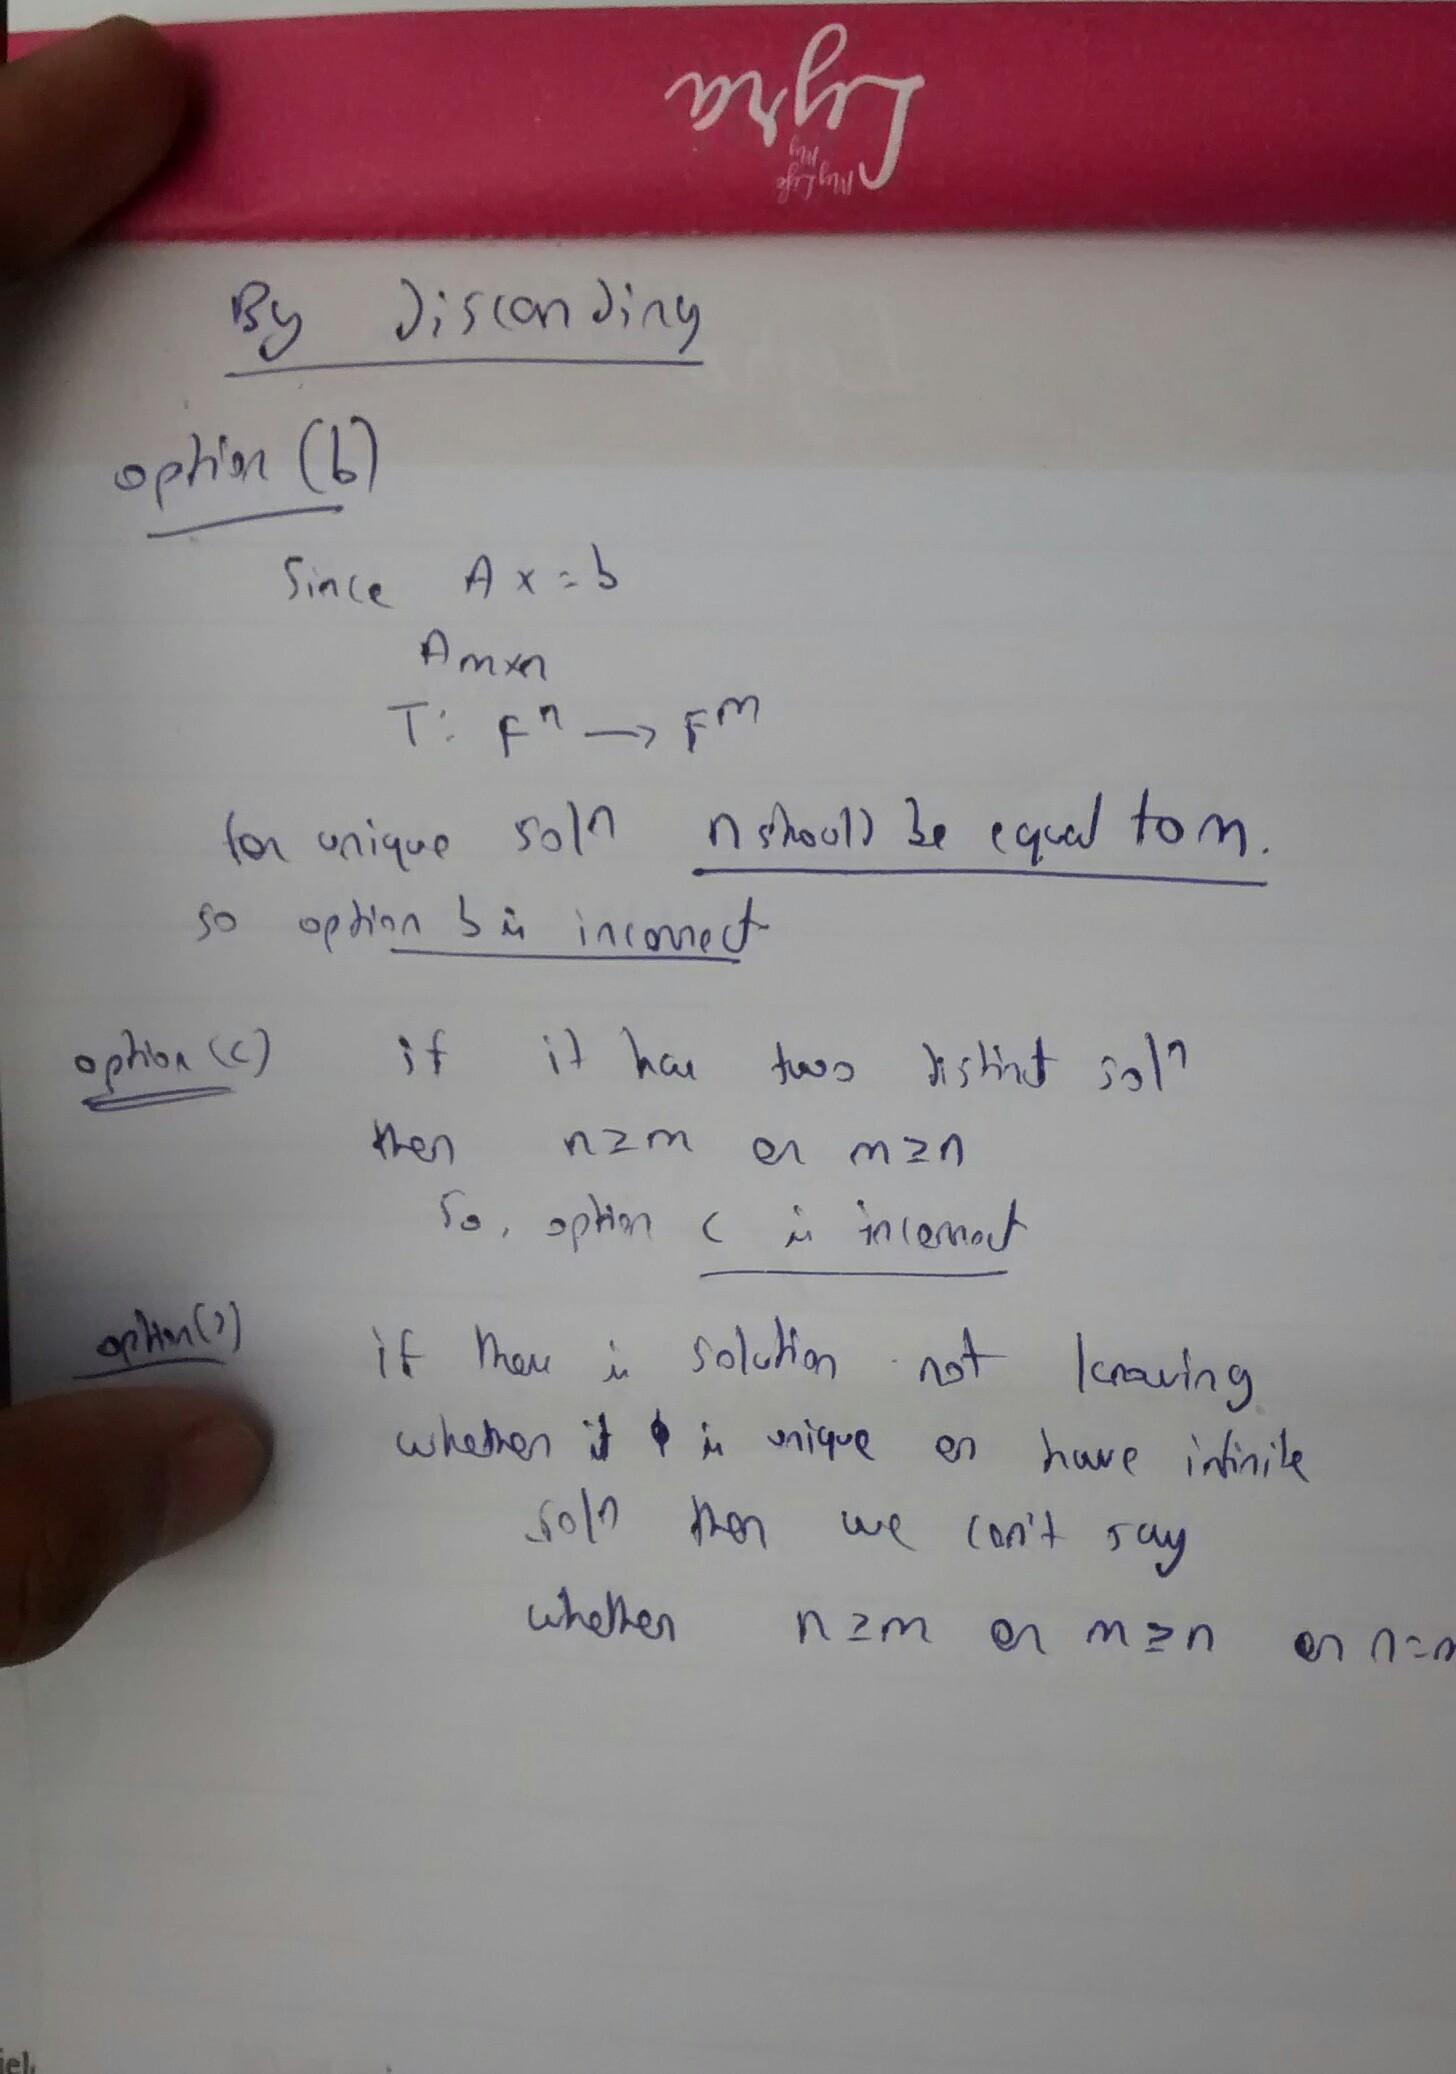 Lyra
My Life
My
By Discarding
option (b)
Since Ax = b
Amxn
T: Fⁿ → Fᵐ
for unique solⁿ n should be equal to m.
so option b is incorrect
option (c) if it has two distinct solⁿ
then n ≥ m or m ≥ n
So, option c is incorrect
option (d) if there is solution not knowing
whether it is unique or have infinite
solⁿ then we can't say
whether n ≥ m or m ≥ n or n = m
iel.